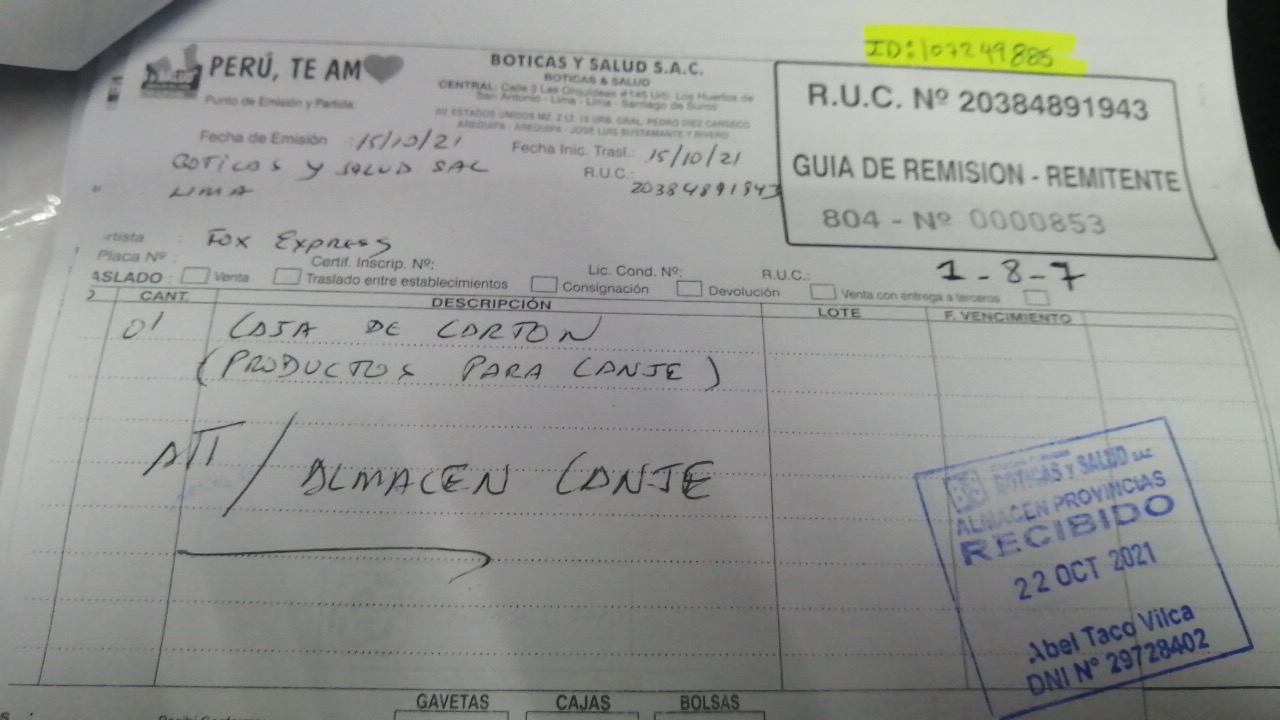 ID:107249885
PERÚ, TE AM
BOTICAS Y SALUD S.A.C.
BOTICAS & SALUD
CENTRAL: Calle 3 Las Orquídeas #145 Urb. Los Huertos de
San Antonio - Lima - Lima - Santiago de Surco
AV. ESTADOS UNIDOS MZ. Z LT. 15 URB. GRAL. PEDRO DIEZ CANSECO
AREQUIPA - AREQUIPA - JOSE LUIS BUSTAMANTE Y RIVERO
R.U.C. Nº 20384891943
GUIA DE REMISION - REMITENTE
804 - Nº 0000853
Punto de Emisión y Partida:
Fecha de Emisión : 15/10/21
Fecha Inic. Trasl.: 15/10/21
BOTICAS Y SALUD SAC
R.U.C.: 20384891943
LIMA
rtista : FOX EXPRESS
Placa Nº :
Certif. Inscrip. Nº:
Lic. Cond. Nº:
R.U.C.:
1-8-7
ASLADO : Venta Traslado entre establecimientos Consignación Devolución Venta con entrega a terceros
CANT. DESCRIPCIÓN LOTE F. VENCIMIENTO
01 CAJA DE CARTON
(PRODUCTOS PARA CANJE)
ATT / ALMACEN CANJE
BOTICAS Y SALUD SAC
ALMACEN PROVINCIAS
RECIBIDO
22 OCT 2021
Abel Taco Vilca
DNI Nº 29728402
GAVETAS CAJAS BOLSAS